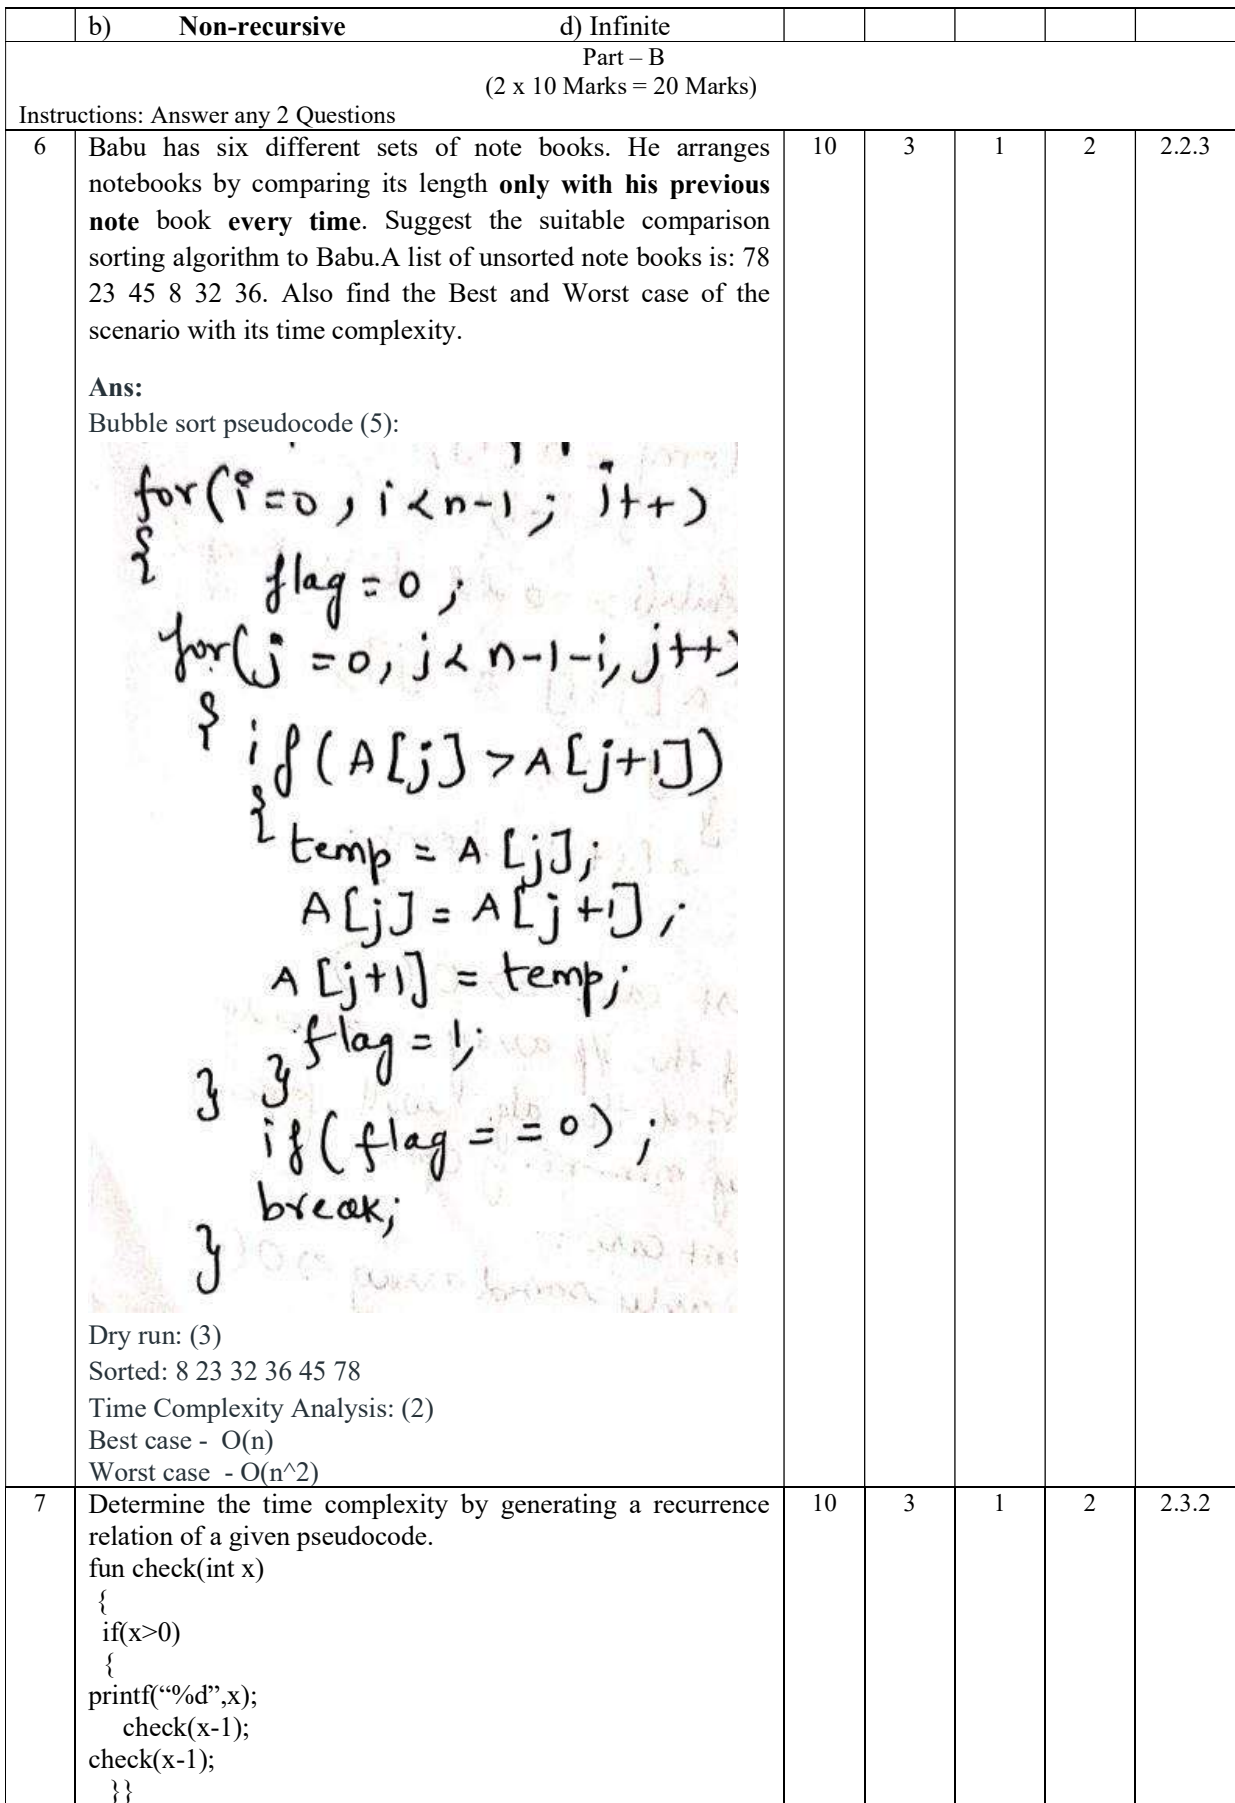 b) Non-recursive d) Infinite
Part – B
(2 x 10 Marks = 20 Marks)
Instructions: Answer any 2 Questions
6 Babu has six different sets of note books. He arranges 10 3 1 2 2.2.3
notebooks by comparing its length only with his previous
note book every time. Suggest the suitable comparison
sorting algorithm to Babu.A list of unsorted note books is: 78
23 45 8 32 36. Also find the Best and Worst case of the
scenario with its time complexity.
Ans:
Bubble sort pseudocode (5):
for(i=0, i<n-1; i++)
{ flag = 0;
for(j=0, j< n-1-i, j++)
{ if(A[j] >A[j+1])
{ temp = A[j];
A[j] = A[j+1];
A[j+1] = temp;
flag = 1;
} }
if(flag = = 0);
break;
}
Dry run: (3)
Sorted: 8 23 32 36 45 78
Time Complexity Analysis: (2)
Best case - O(n)
Worst case - O(n^2)
7 Determine the time complexity by generating a recurrence 10 3 1 2 2.3.2
relation of a given pseudocode.
fun check(int x)
{
if(x>0)
{
printf(“%d”,x);
check(x-1);
check(x-1);
}}